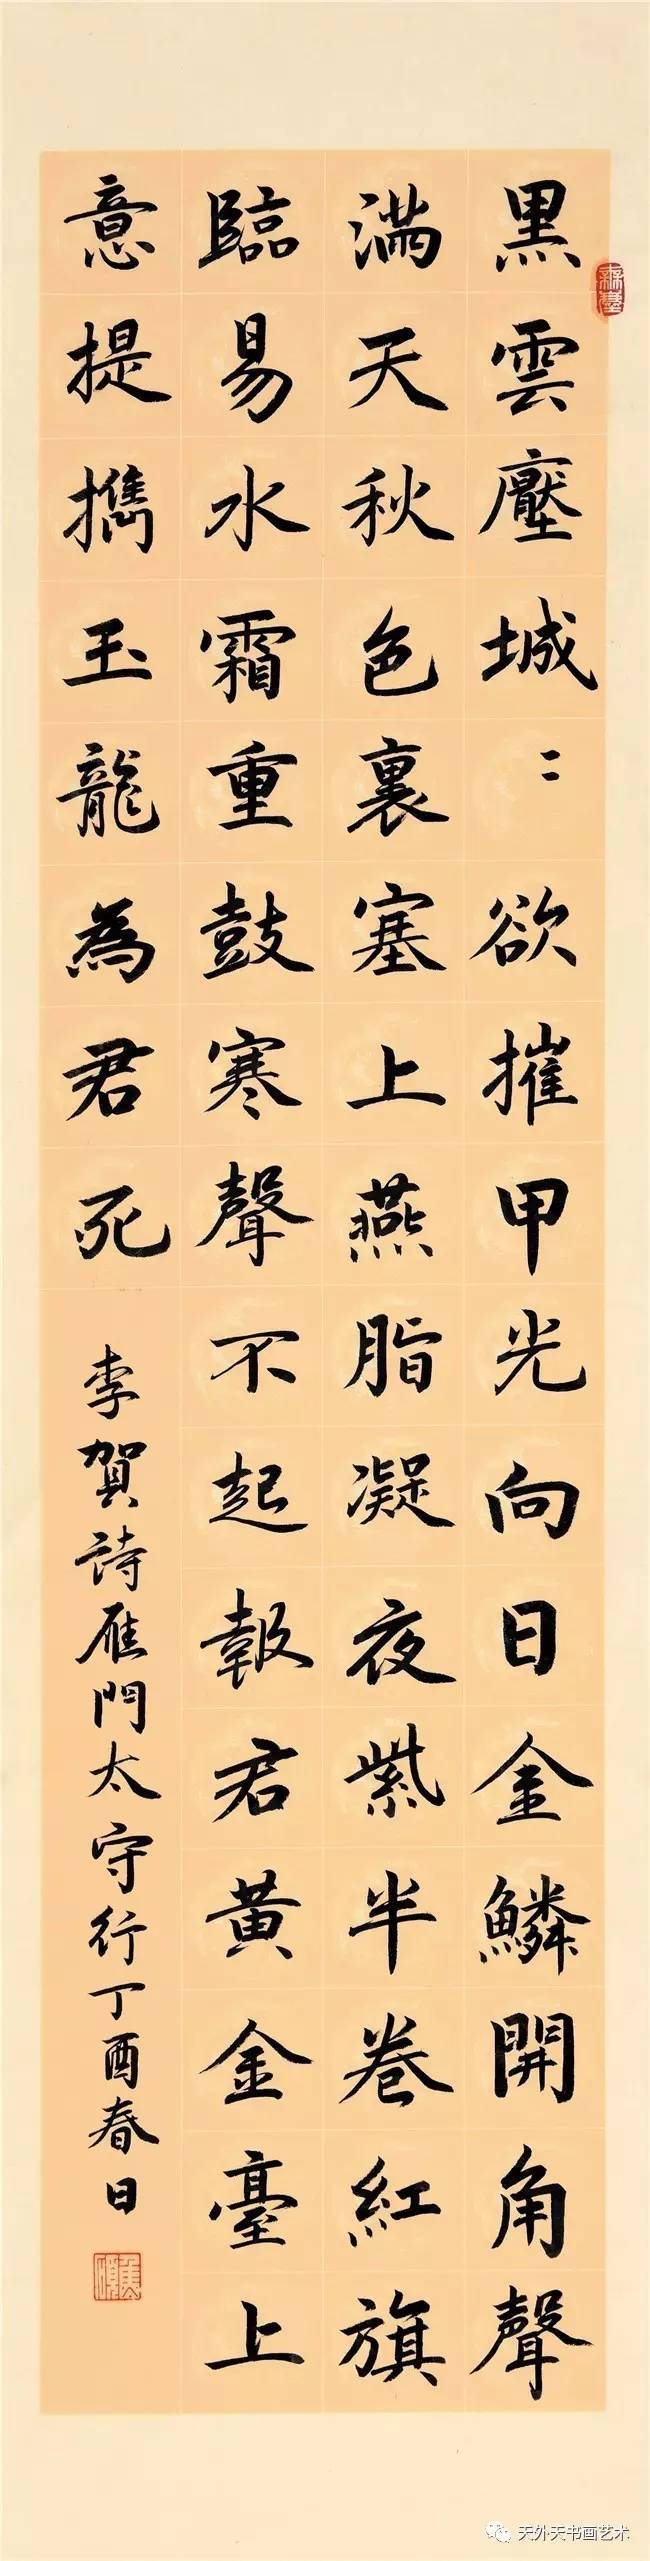 黑雲壓城〻欲摧甲光向日金鱗開角聲
滿天秋色裏塞上燕脂凝夜紫半卷紅旗
臨易水霜重鼓寒聲不起報君黃金臺上
意提攜玉龍為君死
李賀詩雁門太守行丁酉春日
天外天书画艺术